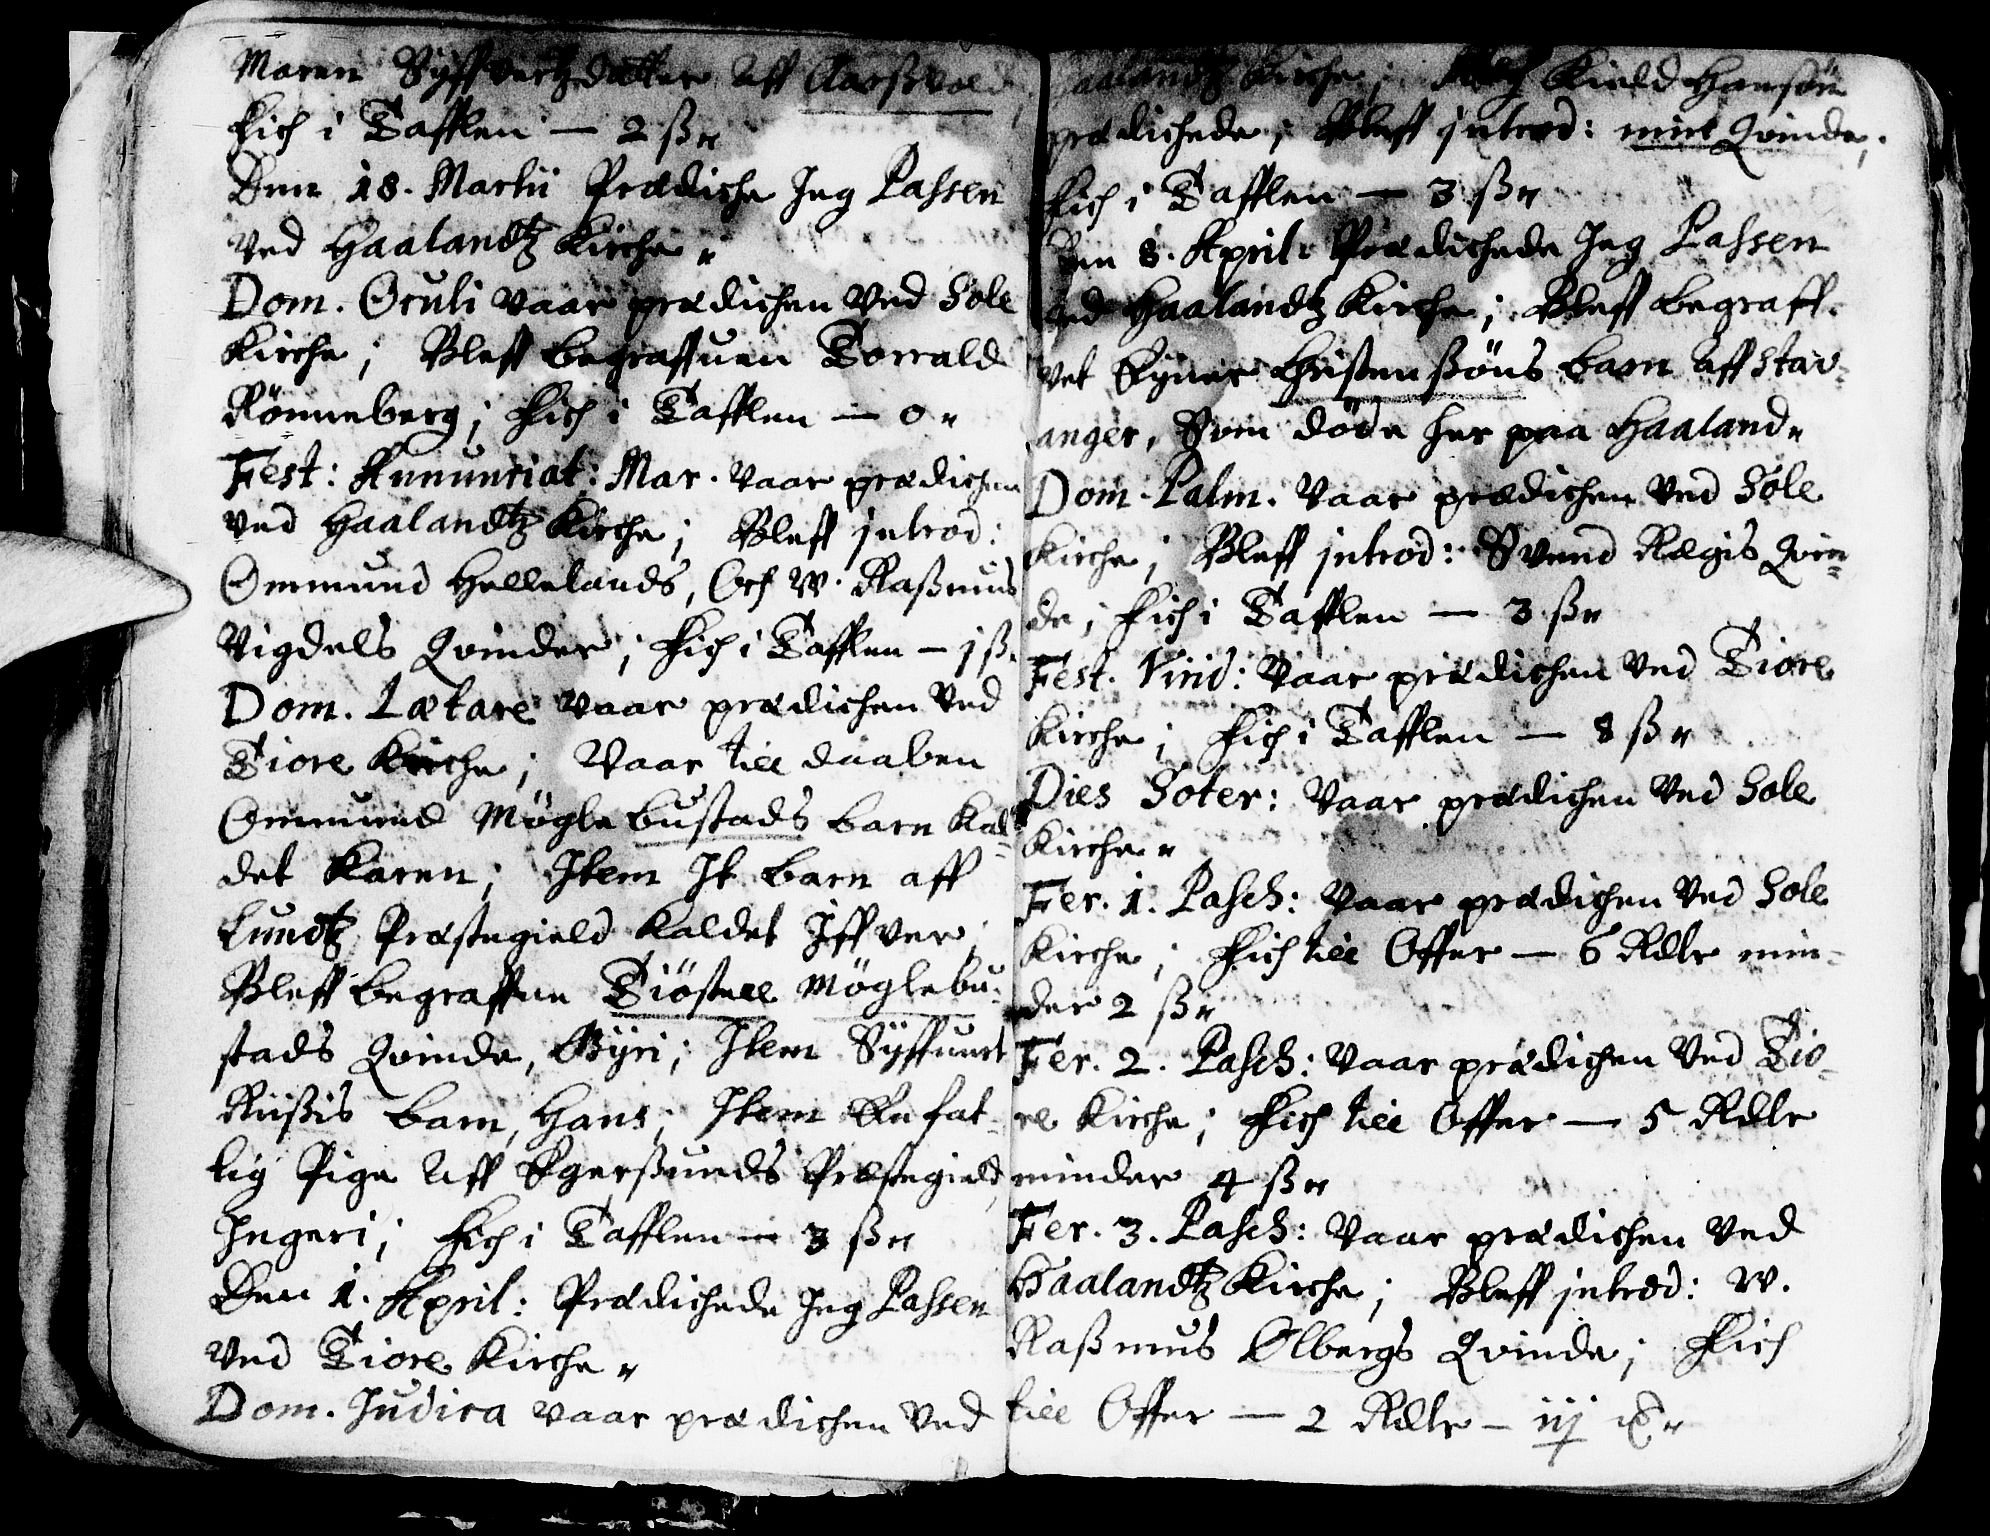 Maren Syffvertzdatter Aff Aarßvold,
Fich i Tafflen — 2 ß
Den 18. Martii Prædiche Jeg Passen
Ved Haalandtz Kirche
Dom. Oculi vaar prædichen Ved Sole
Kirche; Bleff begraffuen Torrald
Rönneberg; Fich i Tafflen — 0
Fest: Annunciat: Mar. vaar prædichen
ved Haalandtz Kirche; Bleff introd:
Ommund Hellelands, Och W. Raßmus
Vigdels Qvinder; Fich i Tafflen — j ß
Dom. Lætare vaar prædichen Ved
Tiore Kirche; Vaar till daaben
Ommund Möglebustads barn Kal-
det Karen; Item It barn aff
Lundtz Præstegield kaldet Iffver;
Bleff begraffuen Tiöstell Möglebu-
stads Qvinde, Gyri; Item Syffuert
Riißis barn, Hans; Item En fat-
tig Pige Aff Egerßunds Præstegield,
Ingeri; Fich i Tafflen — 3 ß
Den 1. April: Prædichede Jeg Passen
Ved Tiore Kirche
Dom. Judica vaar prædichen Ved
Haalandtz Kirche; Kield Hansön
prædichede; Bleff introd: min Qvinde;
Fich i Tafflen — 3 ß
Den 8. April: Prædichede Jeg Passen
ved Haalandtz Kirche; Bleff begraff-
vet Eyner Christenßöns barn Aff Stav-
anger, Som döde her paa Haaland
Dom. Palm. Vaar prædichen Ved Sole
Kirche; Bleff introd: Svend Rægis Qvin-
de; Fich i Tafflen — 3 ß
Fest. Virid: Vaar prædichen Ved Tiore
Kirche; Fich i Tafflen — 8 ß
Dies Soter: Vaar prædichen Ved Sole
Kirche
Fer. 1. Pasch: Vaar prædichen Ved Sole
Kirche; Fich till Offer — 6 Rdlr min-
der 2 ß
Fer. 2. Pasch: Vaar prædichen Ved Tio-
re Kirche; Fich till Offer — 5 Rdlr
minder 4 ß
Fer. 3. Pasch: Vaar prædichen Ved
Haalandtz Kirche; Bleff introd: W.
Raßmus Ölbergs Qvinde; Fich
till Offer — 2 Rdlr — iij